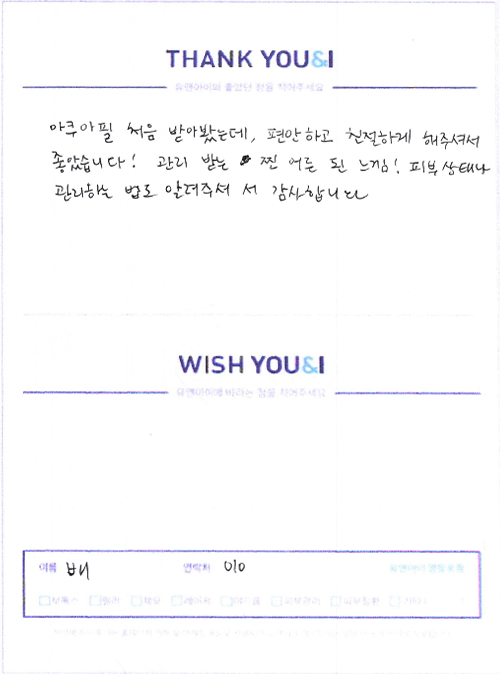 THANK YOU&I
유앤아이의 좋았던 점을 적어주세요
아쿠아필 처음 받아봤는데, 편안하고 친절하게 해주셔서
좋았습니다! 관리 받는 찐 어른 된 느낌! 피부상태나
관리하는 법도 알려주셔서 감사합니다
WISH YOU&I
유앤아이에 바라는 점을 적어주세요
이름 배 연락처 010 유앤아이 영등포점
보톡스 필러 제모 레이저 여드름 피부관리 피부질환 기타